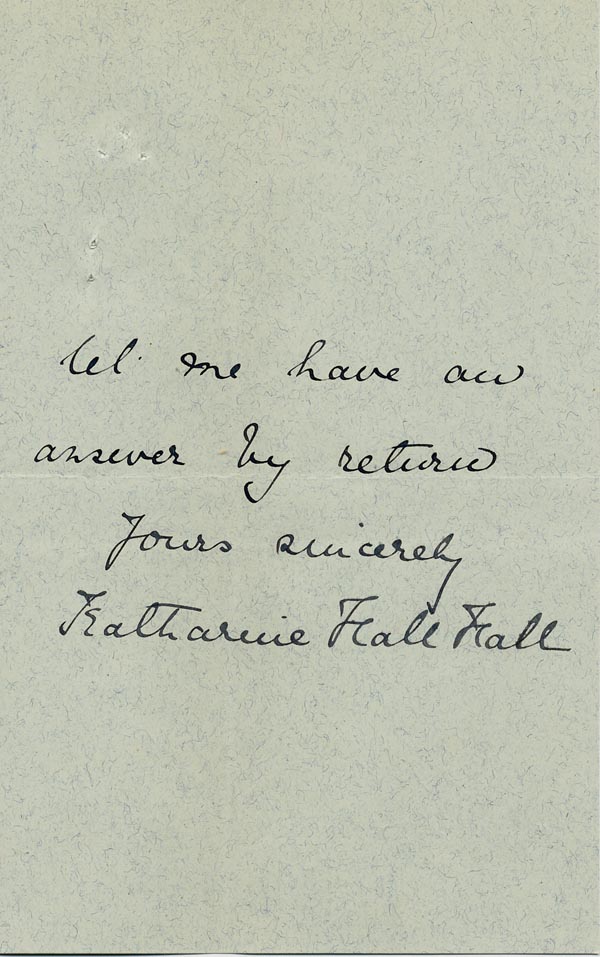 let me have an
answer by return
Yours sincerely
Katharine Hall Hall